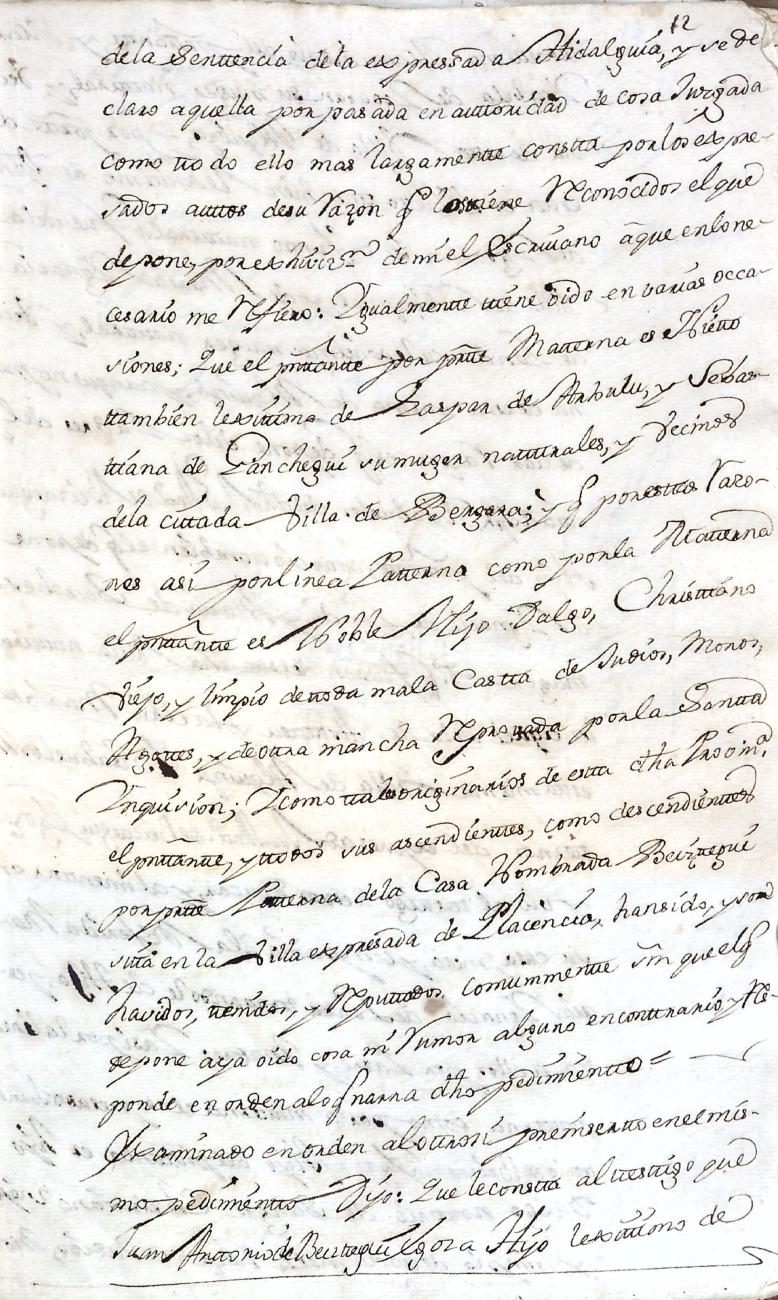 12
dela Sentencia dela expressada Hidalguia, y se de
claro aquella por pasada en auttoridad de cosa Juzgada
como ttodo ello mas largamente constta por los expre-
sados auttos de su Razon q̃ los tiene Reconocidos el que
depone, por exhivizon de mi el Escrivano a que en lo ne-
cesario me Refiero: Igualmentte ttiene oido en varias occa-
siones; Que el presᵗᵃⁿᵗᵉ por prᵗᵉ Matterna es Nietto
ttambien lexittimo de Gaspar de Arbulu, y Sebas-
ttiana de Ganchegui su muger natturales, y Vecinos
dela cittada Villa de Bergara; y q̃ por esttas Razo-
nes asi por linea Patterna como por la Matterna
el presᵗᵃⁿᵗᵉ es Noble Hijo Dalgo, Christtiano
Viejo, y limpio de ttoda mala Castta de Judios, Moros,
Agotes, y de otra mancha Reprovada por la Santta
Inquisicion; Y como ttales originarios de estta dha Provinᵃ
el presᵗᵃⁿᵗᵉ, y ttodos sus ascendientes, como descendientes
por prᵗᵉ Patterna dela Casa Nombrada Beiztegui
sitta en la Villa expresada de Placencia, han sido, y son
havidos, tenidos, y Reputtados comunmentte sin que el q̃
depone aya oido cosa ni Rumor alguno en conttrario y Res-
ponde en orden a lo q̃ narra dho pedimientto =
Examinado en orden al ottrosi preinsertto en el mis-
mo pedimientto Dijo: Que le constta al ttesttigo que
Juan Anttonio de Beiztegui Egoza Hijo lexittimo de